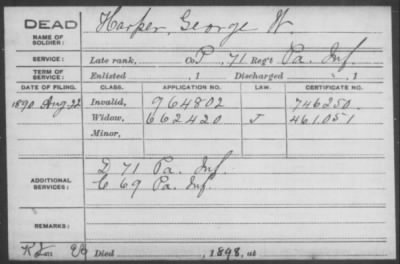 DEAD
NAME OF SOLDIER:
Harper, George W.
SERVICE:
Late rank, Co. 71 Reg't Pa. Inf.
TERM OF SERVICE:
Enlisted , 1 Discharged , 1
DATE OF FILING. CLASS. APPLICATION NO. LAW. CERTIFICATE NO.
1890 Aug. 22 Invalid, 964802 746250.
Widow, 662420 J 461.051
Minor,
ADDITIONAL SERVICES:
D 71 Pa. Inf.
C 69 Pa. Inf.
REMARKS:
Died , 1898, at